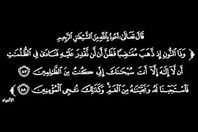 قال تعالى: أعوذ بالله من الشيطان الرجيم
﴿ وَذَا ٱلنُّونِ إِذ ذَّهَبَ مُغَٰضِبًا فَظَنَّ أَن لَّن نَّقْدِرَ عَلَيْهِ فَنَادَىٰ فِى ٱلظُّلُمَٰتِ
أَن لَّآ إِلَٰهَ إِلَّآ أَنتَ سُبْحَٰنَكَ إِنِّى كُنتُ مِنَ ٱلظَّٰلِمِينَ ٨٧
فَٱسْتَجَبْنَا لَهُۥ وَنَجَّيْنَٰهُ مِنَ ٱلْغَمِّ وَكَذَٰلِكَ نُۨجِى ٱلْمُؤْمِنِينَ ٨٨ ﴾
الأنبياء